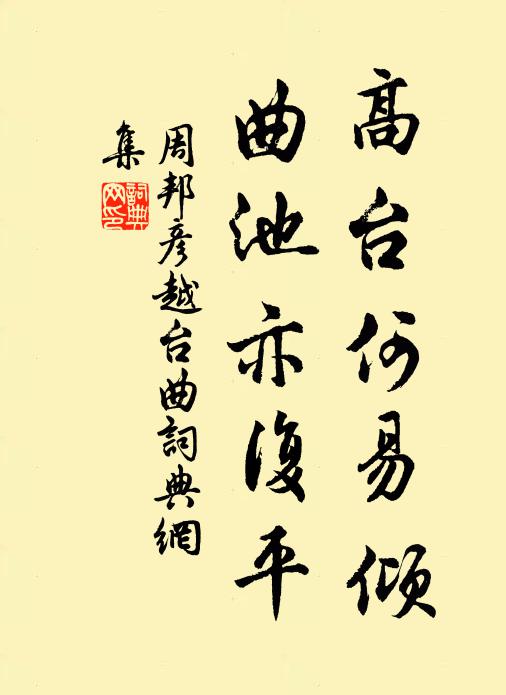 高台何易傾
曲池亦復平
周邦彦越台曲詞典網
集
詞典
网印